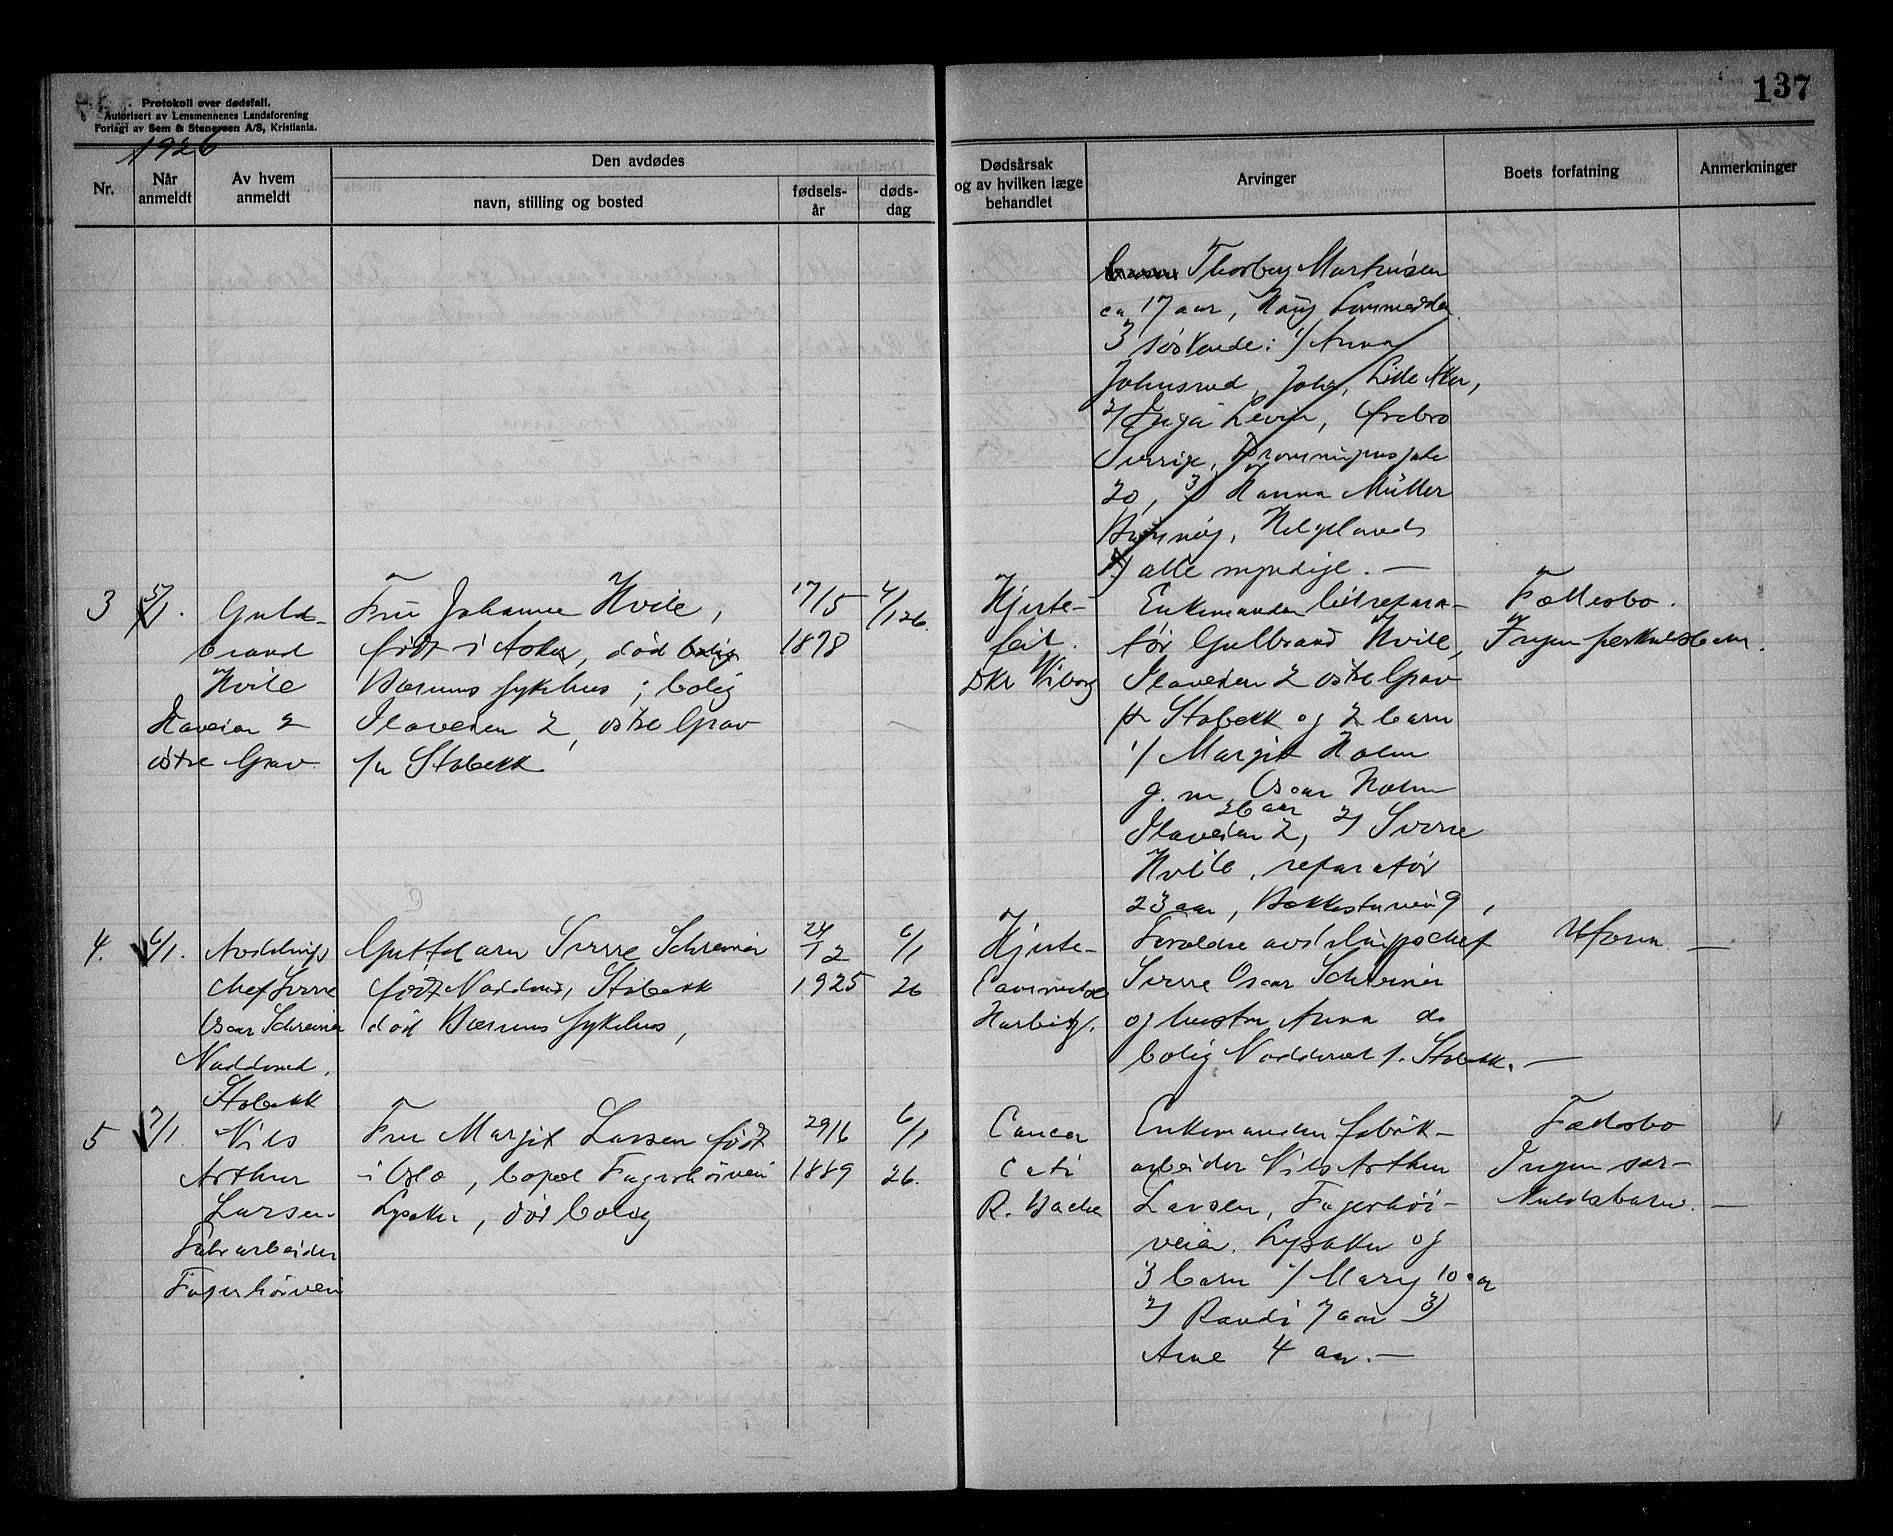 137
Protokoll over dødsfall.
Autorisert av Lensmennenes Landsforening
Forlagt av Sem & Stenersen A/S, Kristiania.
1926
Nr.
Når anmeldt
Av hvem anmeldt
Den avdødes
navn, stilling og bosted
fødsels-
år
døds-
dag
Dødsårsak
og av hvilken læge
behandlet
Arvinger
Boets forfatning
Anmerkninger
Thorberg Martinsen
ca 17 aar, Haug Lommedalen.
3 søskende: 1/ Anna
Johnsrud, Lille Aker,
2/ Inga Levin, Örebro
Sverige, Dronningensgade
20, 3/ Hanna Müller
Brønnøy, Helgeland
alle myndige. —
3
5/1.
Guld-
brand
Hvile
Ilaveien 2
østre Grav.
Fru Johanne Hvile,
født i Asker, død bolig
Bærums sykehus; bolig
Ilaveien 2, østre Grav
pr Stabekk
17/5
1878
4/1 26.
Hjerte-
feil.
Dkr Viborg
Enkemanden
tør Gulbrand Hvile,
Ilaveien 2 østre Grav
pr Stabekk og 2 barn
1/ Margit Holm
g. m. Oscar Holm
26 aar
Ilaveien 2, 2/ Sverre
Hvile, reparatør
23 aar, Bekkestuvei 9,
Fællesbo.
Ingen særkuldsbarn.
4.
6/1.
Avdelings
chef Sverre
Oscar Schreiner
Nadderud,
Stabekk
Guttebarn Sverre Schreiner
født Nadderud, Stabekk
død Bærums sykehus,
24/12
1925
6/1
26
Hjerte-
Harbitz.
Forældre avdelingschef
Sverre Oscar Schreiner
og hustru Anna do
bolig Nadderud p. Stabekk. —
Uform. —
5
7/1.
Nils
Arthur
Larsen.
Fabrarbeider
Fagerhøiveien
Fru Margit Larsen født
i Oslo, bopæl Fagerhøiveien
Lysaker, død bolig
29/6
1889
6/1
26.
Cancer
R. Backer
Enkemanden fabrik-
arbeider Nils Arthur
Larsen, Fagerhøi-
veien, Lysaker og
3 barn 1/ Mary 10 aar
2/ Randi 7 aar 3/
Arne 4 aar. —
Fællesbo
Ingen sær-
kuldsbarn. —